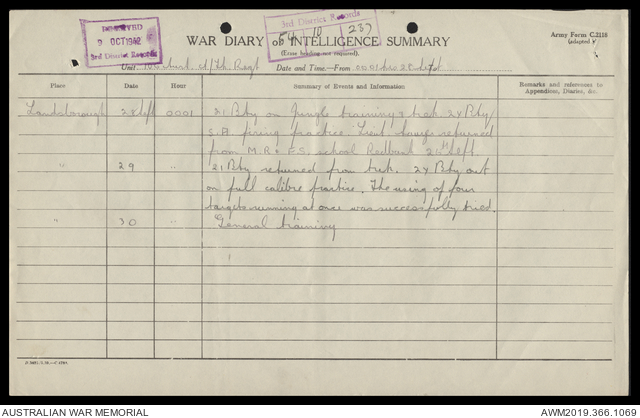 RECEIVED
9 OCT 1942
3rd District Records
3rd District Records
54 10 237
Army Form C.2118
(adapted)
WAR DIARY or INTELLIGENCE SUMMARY
(Erase heading not required).
Unit Aust. A/Tk. Regt Date and Time—From 0001 hrs 28 Sept
Place Date Hour Summary of Events and Information Remarks and references to
Appendices, Diaries, &c.
Landsborough 28 Sept 0001 21 Bty on Jungle training & trek 24 Bty
S.A. firing practice. Lieut returned
from M.R. & F.S. school Redbank 25th Sept.
" 29 " 21 Bty returned from trek. 24 Bty out
on full calibre practice. The using of four
targets running at once was successfully tried.
" 30 " General training
AUSTRALIAN WAR MEMORIAL AWM2019.366.1069